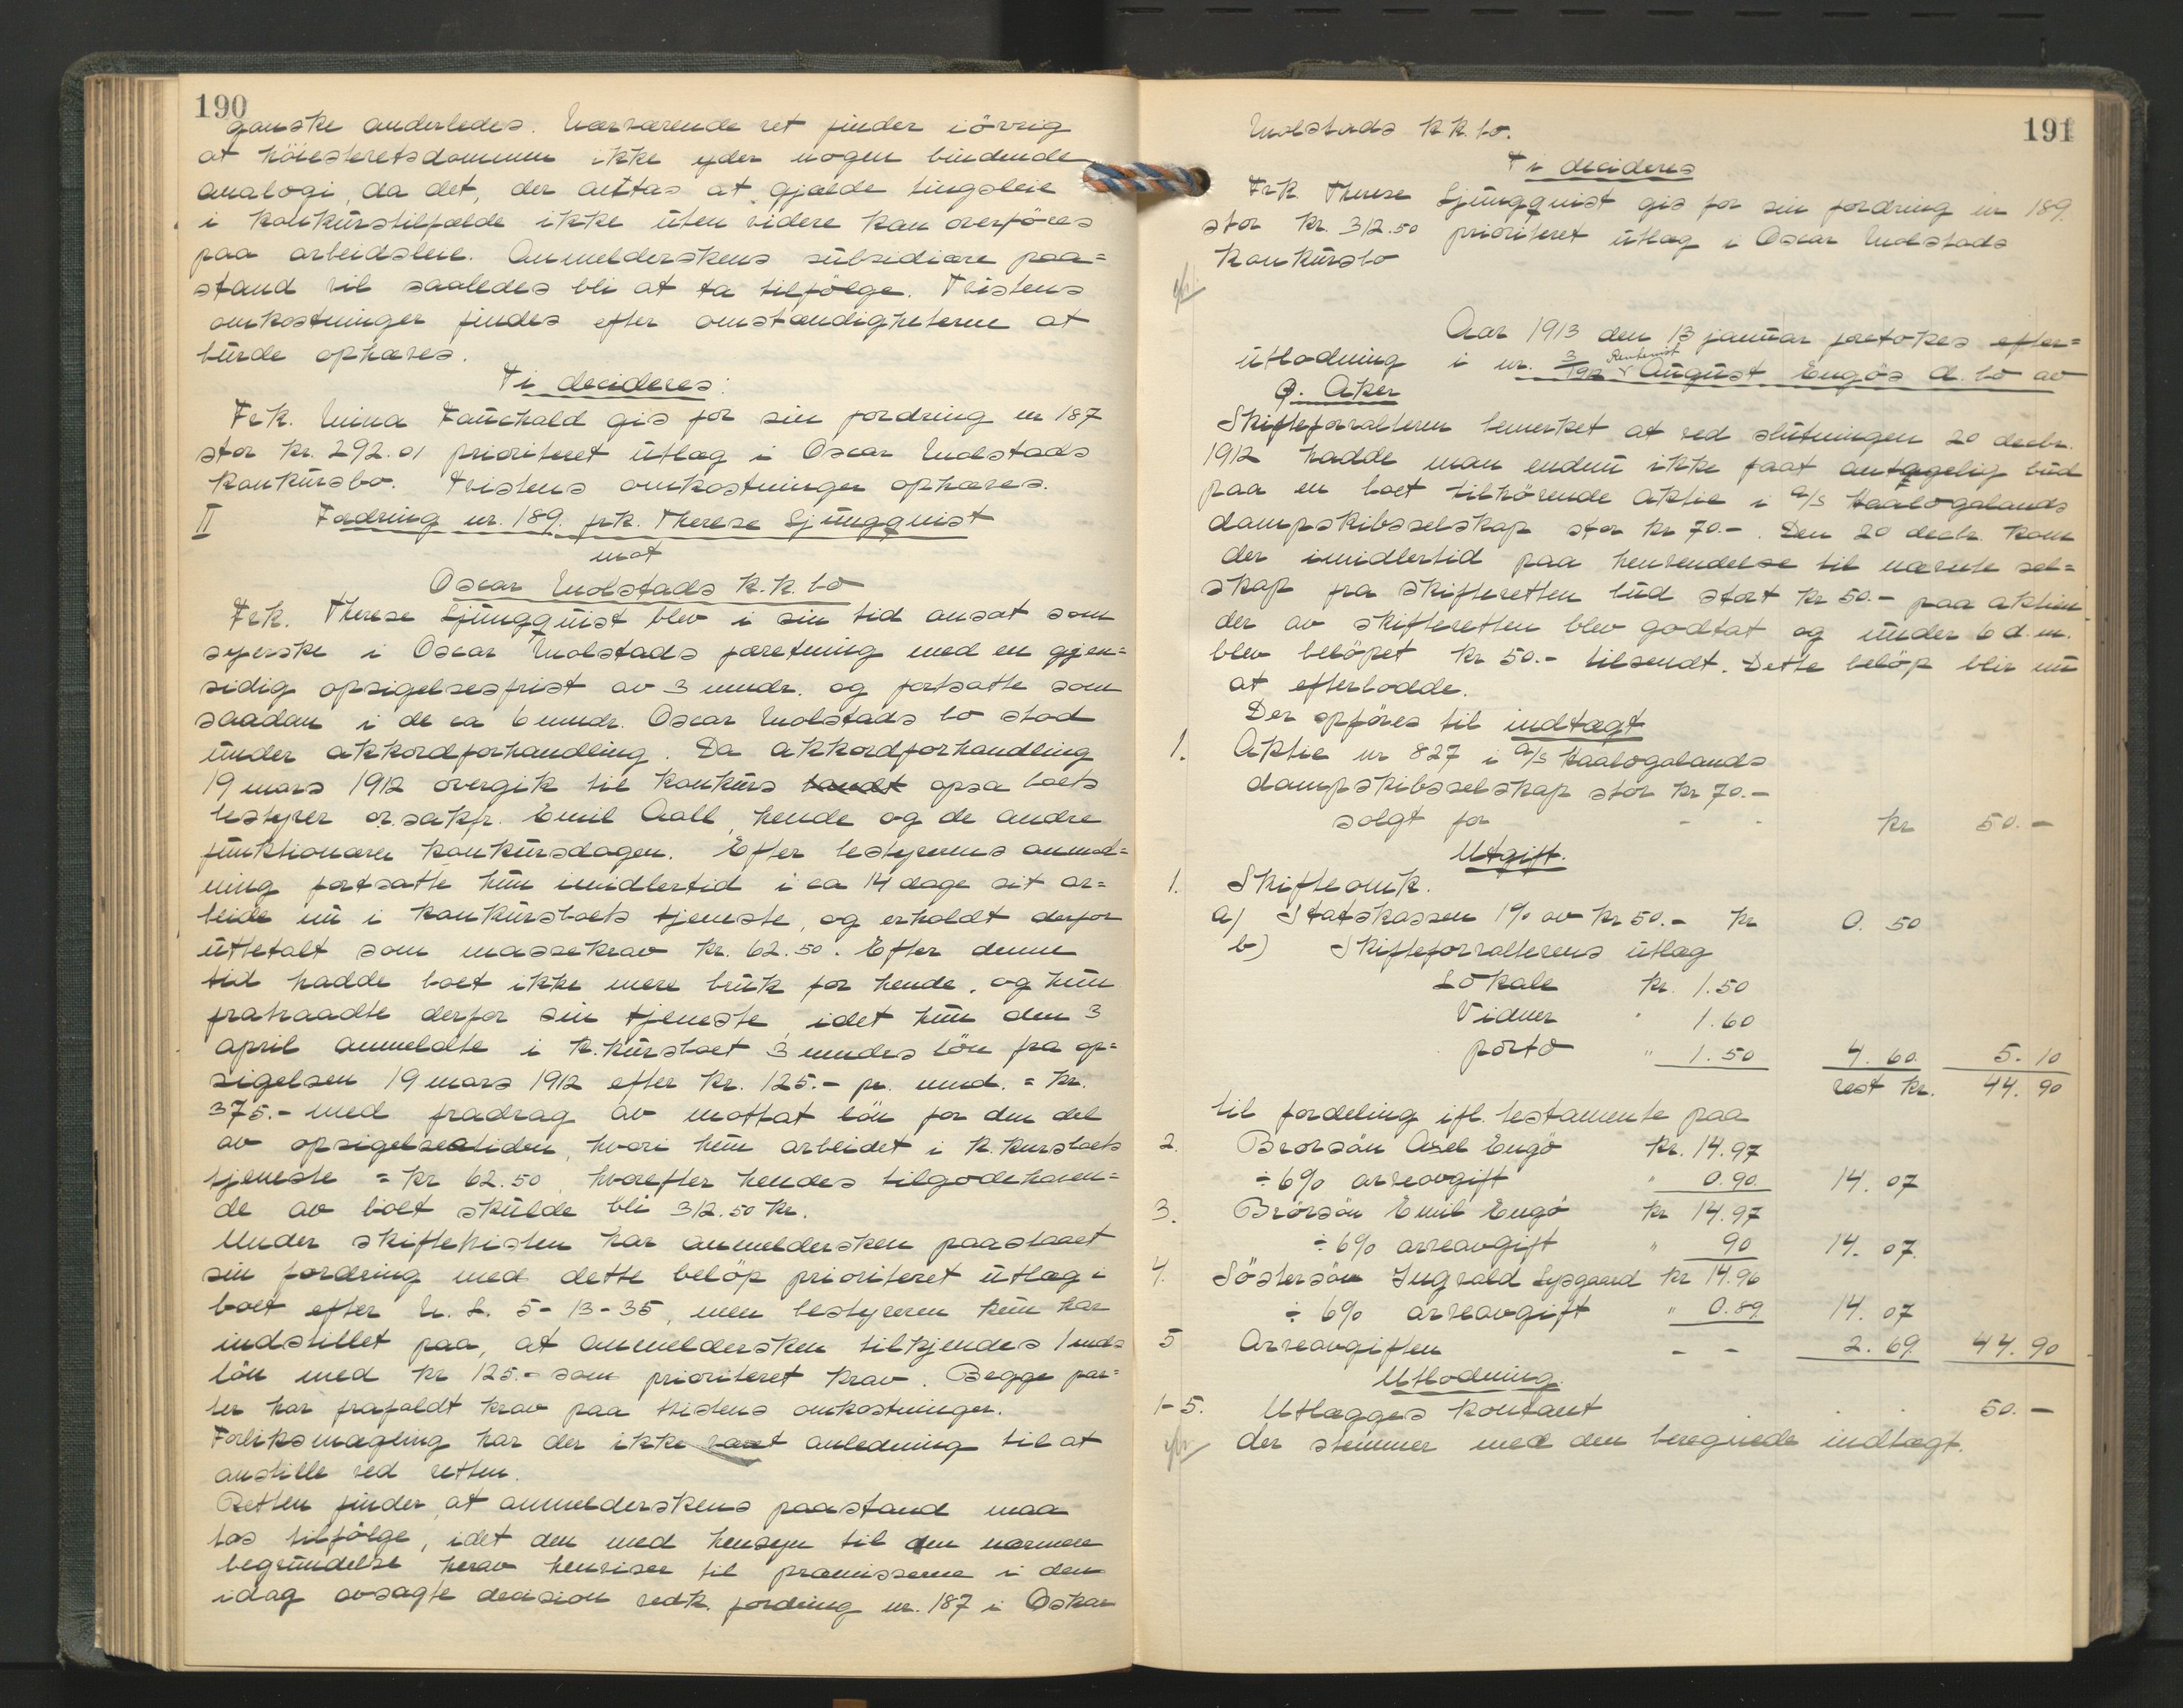 190
ganske anderledes. Nærværende ret finder iövrig
at höiesteretsdommen ikke yder nogen bindende
analogi, da det, der antas at gjælde tingsleie
i konkurstilfælde ikke uten videre kan overföres
paa arbeidsleie. Anmelderskens subsidiære paa=
stand vil saaledes bli at ta tilfölge. Tvistens
omkostninger findes efter omstændigheterne at
burde ophæves.
Ti decideres:
Frk. Mina Fauchald gis for sin fordring nr 187
stor kr. 292.01 prioriteret utlæg i Oscar Molstads
konkursbo. Tvistens omkostninger ophæves.
II Fordring nr. 189. frk. Therese Ljungquist
mot
Oscar Molstads k.k. bo
Frk. Therese Ljungquist blev i sin tid ansat som
syerske i Oscar Molstads forretning med en gjen=
sidig opsigelsesfrist av 3 mndr. og fortsatte som
saadan i de ca 6 mndr. Oscar Molstads bo stod
under akkordforhandling. Da akkordforhandling
19 mars 1912 overgik til konkurs opsa boets
bestyrer or. sakfr. Emil Aall, hende og de andre
funktionærer konkursdagen. Efter bestyrerens anmod=
ning fortsatte hun imidlertid i ca 14 dage sit ar=
beide nu i konkursboets tjeneste, og erholdt derfor
utbetalt som massekrav kr. 62.50. Efter denne
tid hadde boet ikke mere bruk for hende, og hun
fratraadte derfor sin tjeneste, idet hun den 3
april anmeldte i k.kursboet 3 mndrs lön fra op=
sigelsen 19 mars 1912 efter kr. 125.- pr. mnd. = kr.
375.- med fradrag av mottat lön for den del
av opsigelsestiden, hvori hun arbeidet i k.kursboets
tjeneste = kr 62.50, hvorefter hendes tilgodehaven=
de av boet skulde bli 312.50 kr.
Under skiftetvisten har anmeldersken paastaaet
sin fordring med dette belöp prioriteret utlæg i
boet efter N. L. 5-13-35, men bestyreren kun har
indstillet paa, at anmeldersken tilkjendes 1 mnds
lön med kr 125.- som prioriteret krav. Begge par=
ter har frafaldt krav paa tvistens omkostninger.
Forliksmægling har der ikke været anledning til at
anstille ved retten.
Retten finder, at anmelderskens paastand maa
tas tilfölge, idet den med hensyn til den nærmere
begrundelse herav henviser til præmisserne i den
idag avsagte decision vedk. fordring nr. 187 i Oskar
191
Molstads k.k. bo.
Ti decideres
Frk Therese Ljungquist gis for sin fordring nr 189.
stor kr. 312.50 prioriteret utlæg i Oscar Molstads
konkursbo
Aar 1913 den 13 januar foretokes efter=
utlodning i nr. 3/1912 Rentenist August Engös d. bo av
Ö. Aker
Skifteforvalteren bemerket at ved slutningen 20 decbr.
1912 hadde man endnu ikke faat antagelig bud
paa en boet tilhörende aktie i a/s Haalogalands
dampskibsselskap stor kr 70.-. Den 20 decbr. kom
der imidlertid paa henvendelse til nævnte sel=
skap fra skifteretten bud stort kr 50.- paa aktien
der av skifteretten blev godtat og under 6 d.m.
blev belöpet kr 50.- tilsendt. Dette belöp blir nu
at efterlodde.
Der opföres til indtægt
1. Aktie nr 827 i a/s Haalogalands
dampskibsselskap stor kr 70.-
solgt for - - kr 50.-
Utgift.
1. Skifteomk.
a) Statskassen 1% av kr 50.- kr 0.50
b) Skifteforvalterens utlæg
Lokale kr. 1.50
Vidner " 1.60
porto " 1.50 4.60. 5.10
rest kr. 44.90
til fordeling ifl. testamente paa
2. Brorsön Axel Engö kr. 14.97
÷ 6% arveavgift " 0.90. 14.07
3. Brorsön Emil Engö kr 14.97
÷ 6% arveavgift " 90 14.07.
4. Söstersön Ingvald Lysgaard kr 14.96
÷ 6% arveavgift " 0.89 14.07
5 Arveavgiften - - 2.69. 44.90
Utlodning.
1-5. Utlægges kontant 50.-
der stemmer med den beregnede indtægt.